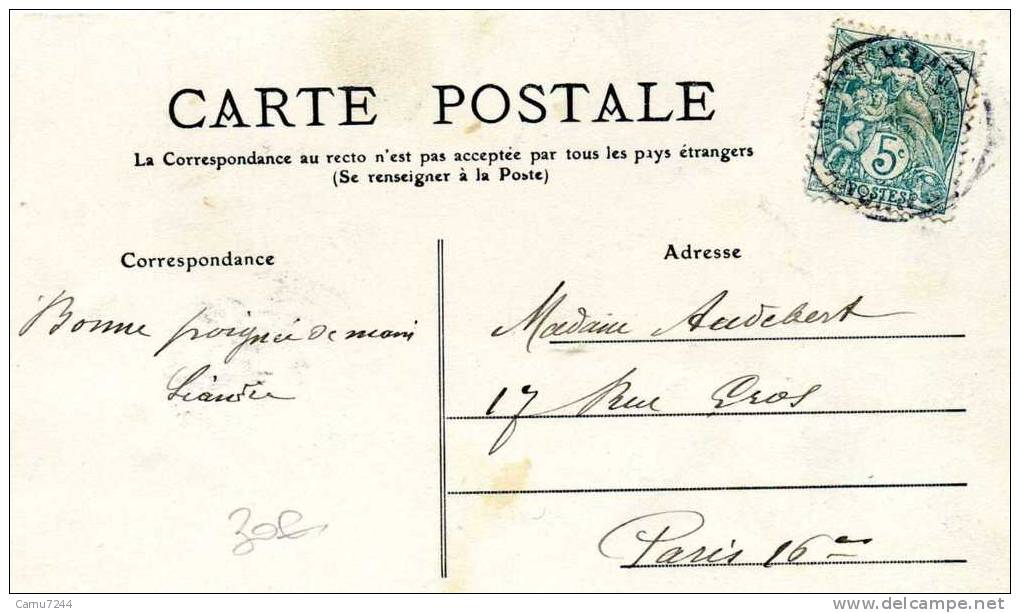 CARTE POSTALE
La Correspondance au recto n'est pas acceptée par tous les pays étrangers
(Se renseigner à la Poste)
5c
POSTES
Correspondance
Bonne poignée de main
Léandre
Adresse
Madame Audebert
17 Rue Gros
Paris 16me
Camu7244
www.delcampe.net